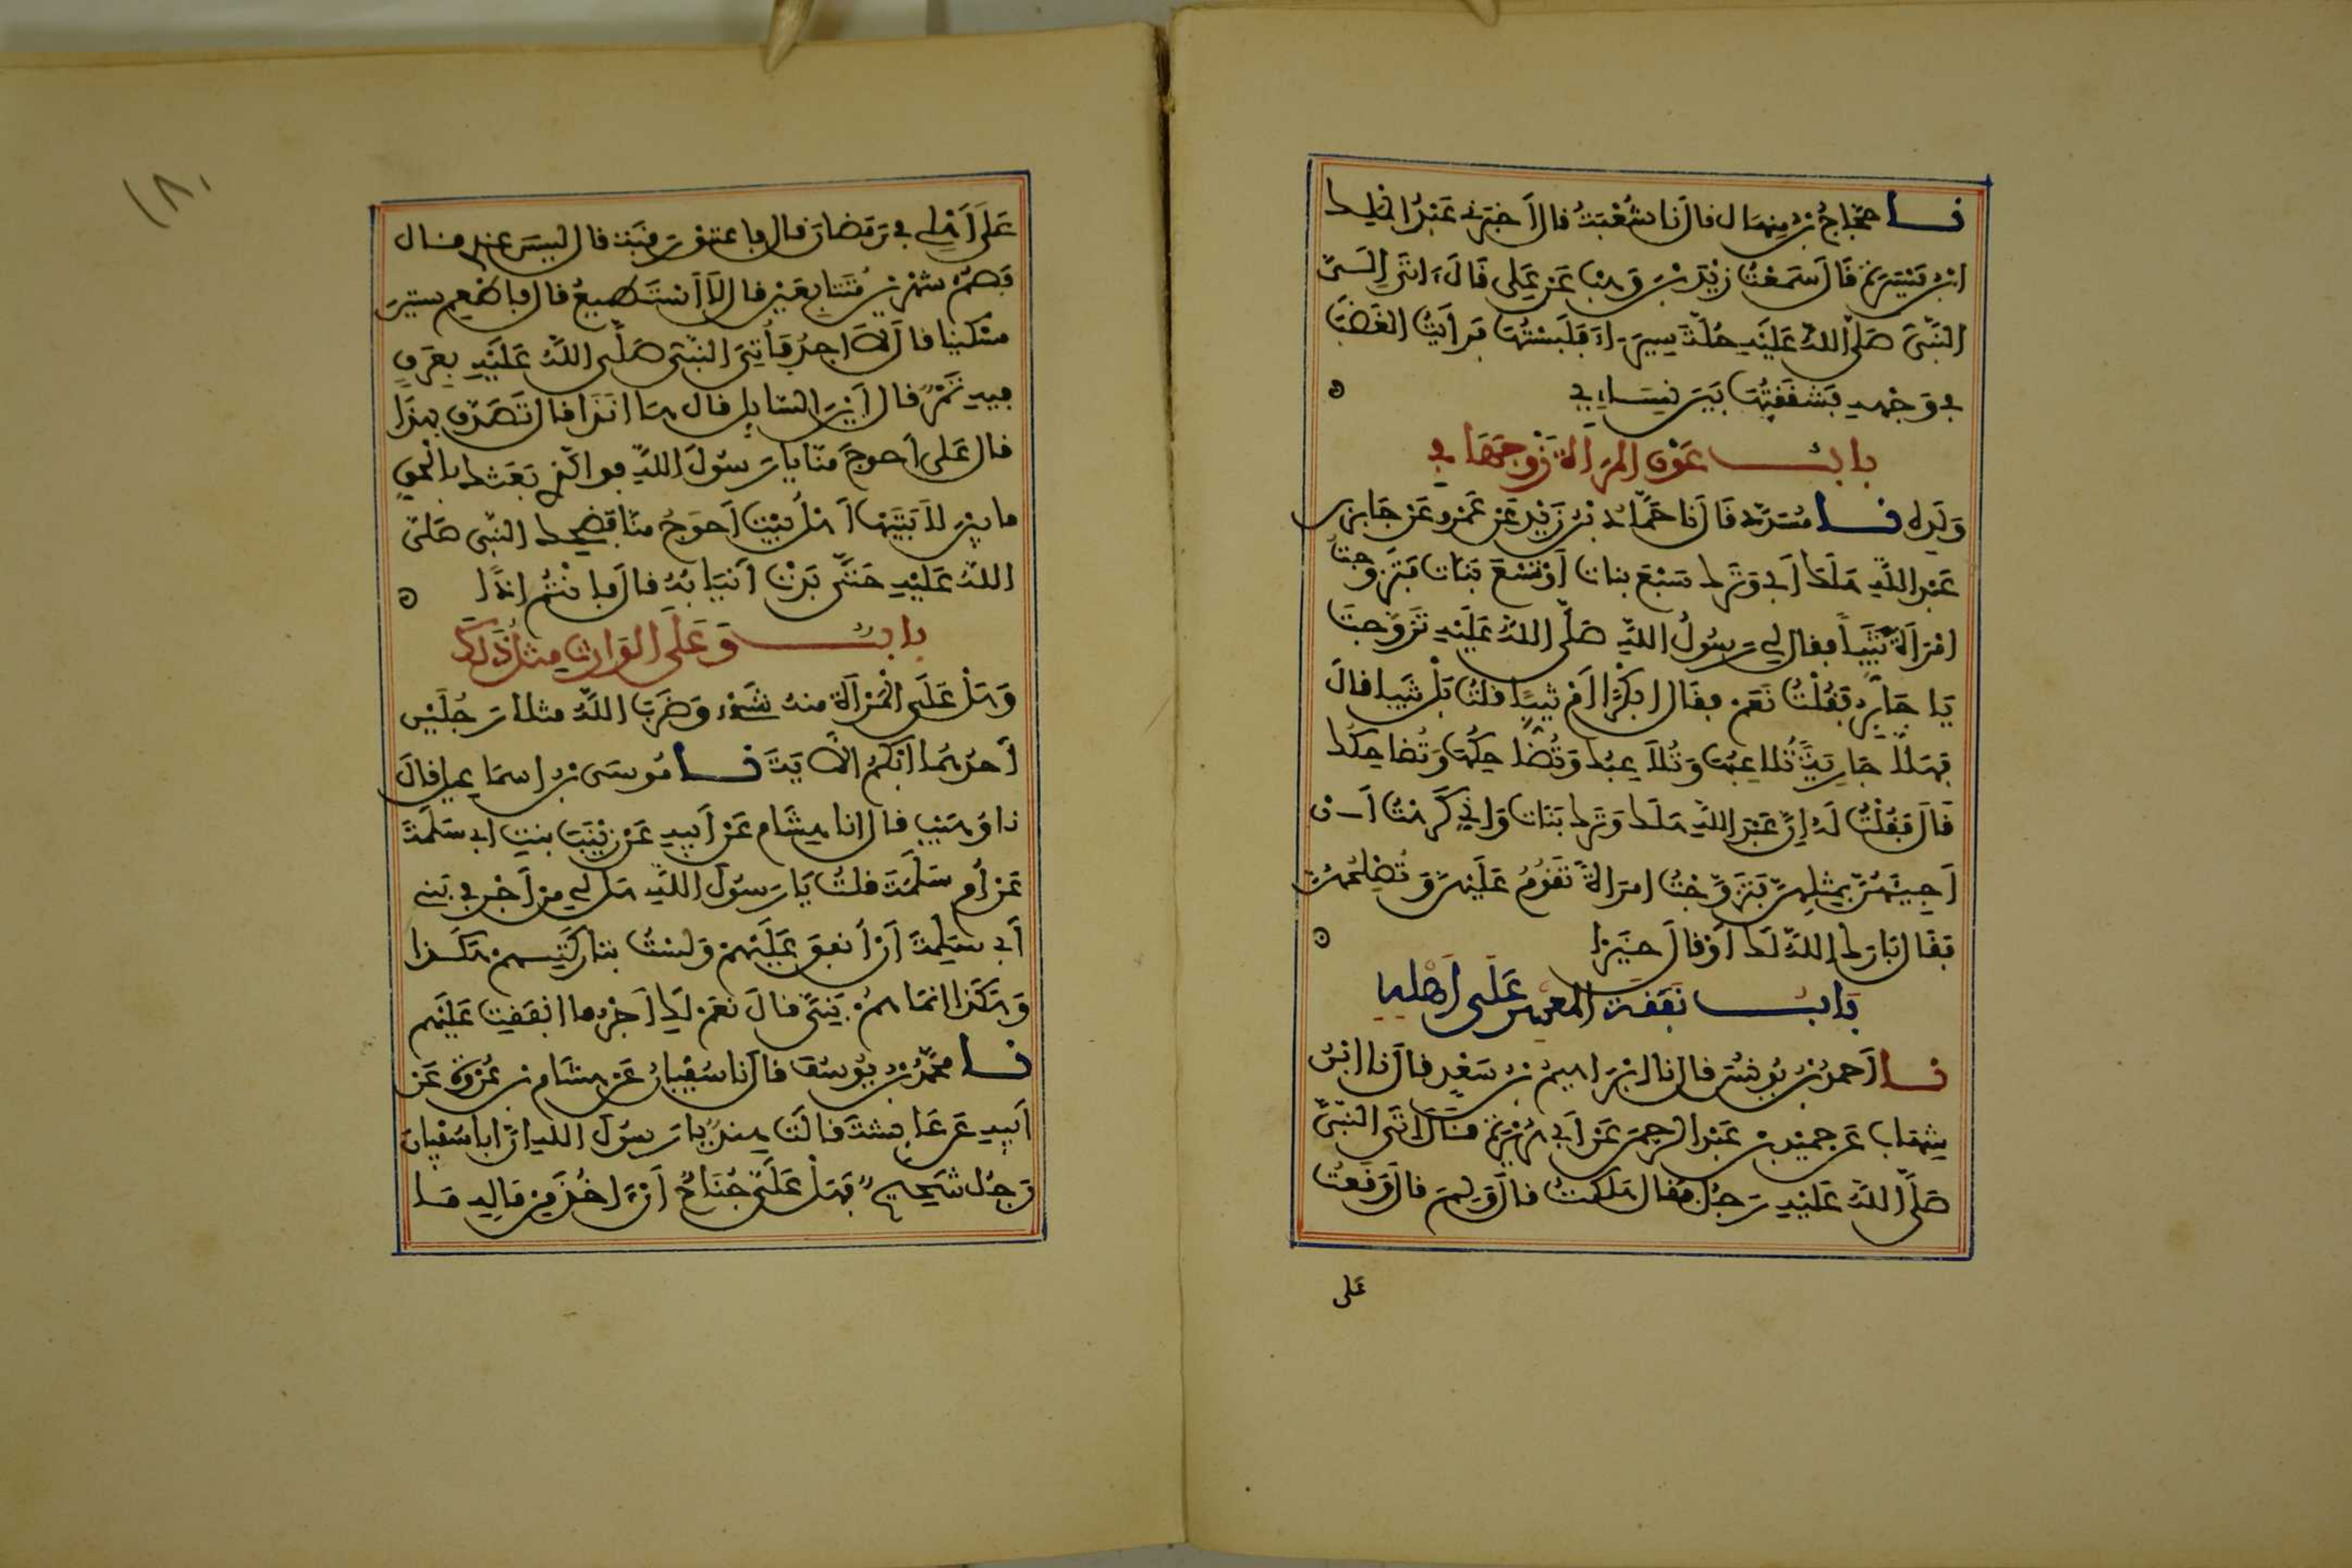 نا حجاج بن منهال قال نا شعبة قال أخبرني عبد الملك
ابن ميسرة قال سمعت زيد بن وهب عن علي قال اتى إلي
النبي صلى الله عليه حلة سيراء فلبستها فرأيت الغضب
في وجهه فشققتها بين نسايي
باب عون المرأة زوجها في
ولده نا مسدد قال نا حماد بن زيد عن عمرو عن جابر بن
عبد الله هلك أبي وترك سبع بنات أو تسع بنات فتزوجت
امرأة ثيبا فقال لي رسول الله صلى الله عليه تزوجت
يا جابر فقلت نعم فقال ابكرا أم ثيبا قلت بل ثيبا قال
فهلا جارية تلاعبها وتلاعبك وتضاحكها وتضاحكك
قال فقلت له إن عبد الله هلك وترك بنات واني كرهت أن
أجيئهن بمثلهن فتزوجت امرأة تقوم عليهن وتصلحهن
فقال بارك الله لك أو قال خيرا
باب نفقة المعسر على أهله
نا أحمد بن يونس قال نا ابراهيم بن سعد قال نا ابن
شهاب عن حميد بن عبد الرحمن عن أبي هريرة قال اتى النبي
صلى الله عليه رجل فقال هلكت قال ولم قال وقعت
على
١٨٠
على أهلي في رمضان قال فاعتق رقبة قال ليس عندي قال
فصم شهرين متتابعين قال لا أستطيع قال فاطعم ستين
مسكينا قال لا اجد فأتي النبي صلى الله عليه بعرق
فيه تمر فقال أين السايل قال ها انذا قال تصدق بهذا
قال على أحوج منا يا رسول الله فوالذي بعثك بالحق
ما بين لابتيها أهل بيت أحوج منا فضحك النبي صلى
الله عليه حتى بدت أنيابه قال فانتم إذا
باب وعلى الوارث مثل ذلك
وهل على المرأة منه شيء وضرب الله مثلا رجلين
أحدهما أبكم الآية نا موسى بن اسماعيل قال
نا وهيب قال انا هشام عن أبيه عن زينب بنت ابي سلمة
عن أم سلمة قلت يا رسول الله هل لي من أجر في بني
أبي سلمة أن أنفق عليهم ولست بتاركتهم هكذا
وهكذا انما هم بني قال نعم لك أجر ما انفقت عليهم
نا محمد بن يوسف قال نا سفيان عن هشام بن عروة عن
أبيه عن عايشة قالت هند يا رسول الله ان ابا سفيان
رجل شحيح فهل علي جناح أن اخذ من ماله ما